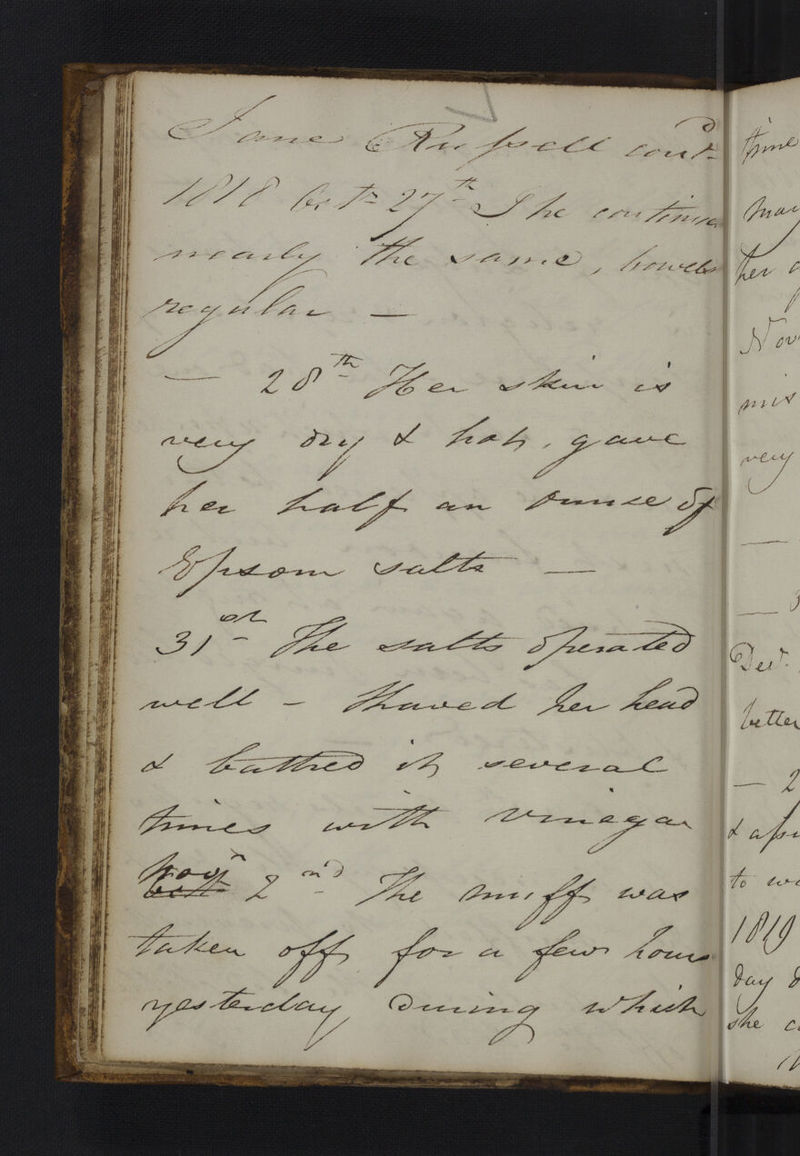 Jane Russell cont.d
1818 Oct. 27th She continues
nearly the same, bowels
regular —
— 28th Her skin is
very dry & hot, gave
her half an ounce of
Epsom salts —
31st The salts operated
well – Shaved her head
& bathed it several
times with vinegar
Novr 2nd The muff was
taken off for a few hours
yesterday during which
time
may
her
Nov
mis
very
—
— 3
Decr.
better
— 2
&
to
1819
day
she